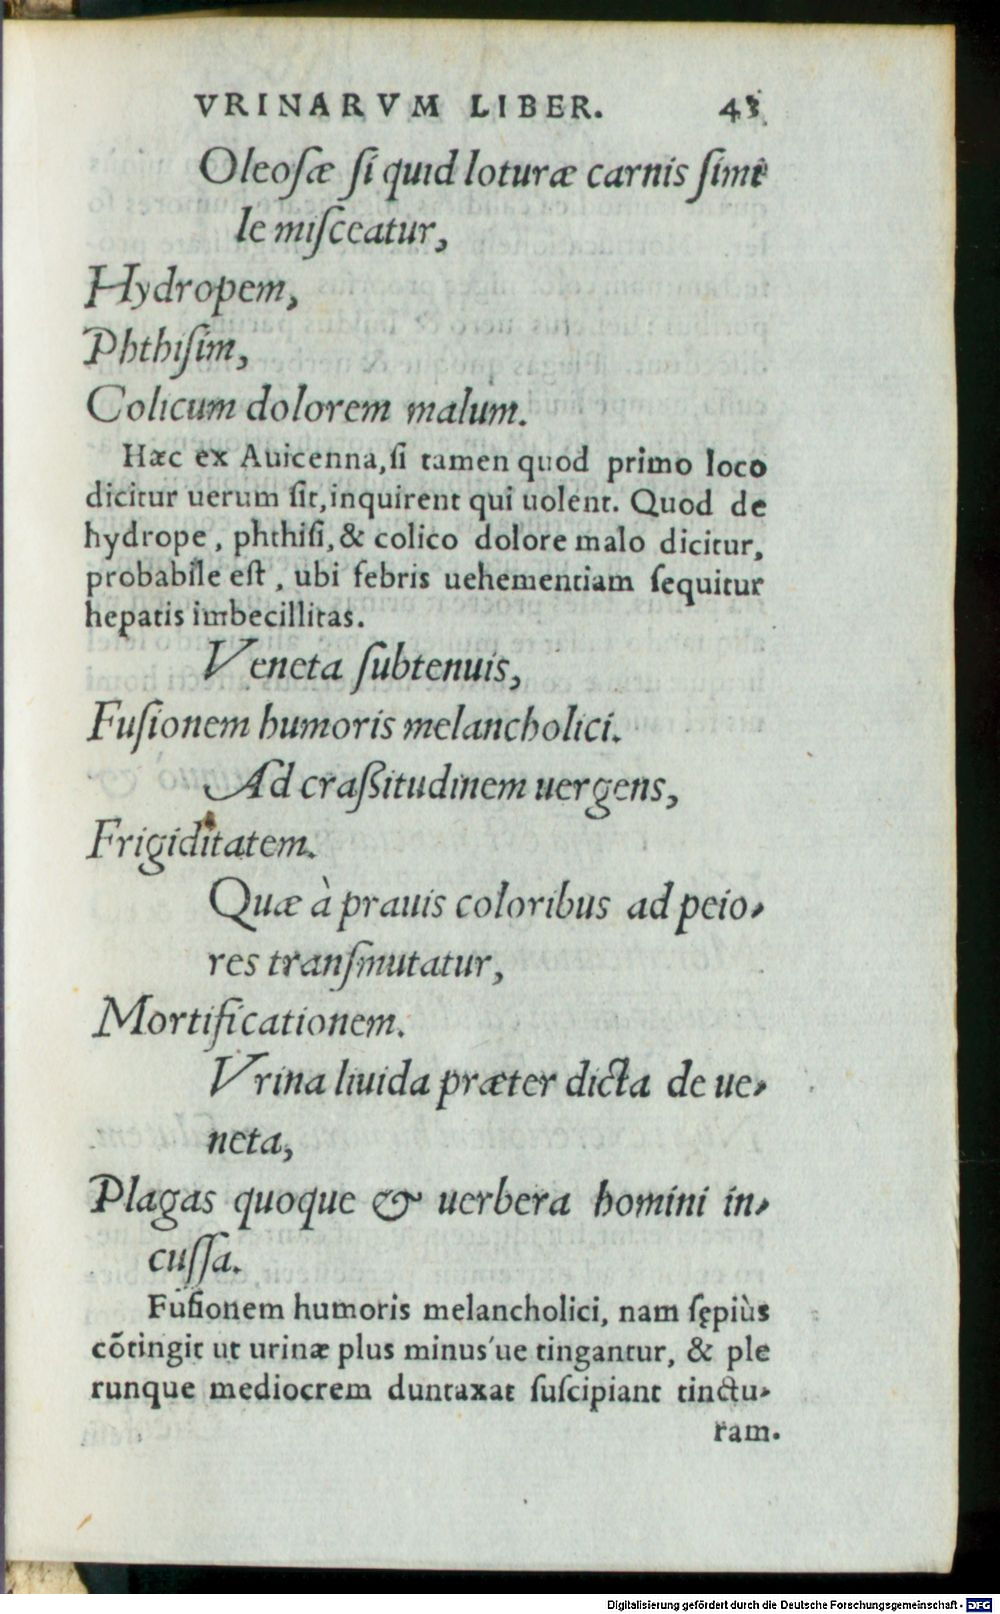 VRINARVM LIBER. 43
Oleosæ si quid loturæ carnis simi
le misceatur,
Hydropem,
Phthisim,
Colicum dolorem malum.
Hæc ex Auicenna, si tamen quod primo loco
dicitur uerum sit, inquirent qui uolent. Quod de
hydrope, phthisi, & colico dolore malo dicitur,
probabile est, ubi febris uehementiam sequitur
hepatis imbecillitas.
Veneta subtenuis,
Fusionem humoris melancholici.
Ad craßitudinem uergens,
Frigiditatem.
Quæ à prauis coloribus ad peio-
res transmutatur,
Mortificationem.
Vrina liuida præter dicta de ue-
neta,
Plagas quoque & uerbera homini in-
cussa.
Fusionem humoris melancholici, nam sępiùs
cõtingit ut urinæ plus minus'ue tingantur, & ple
runque mediocrem duntaxat suscipiant tinctu-
ram.
Digitalisierung gefördert durch die Deutsche Forschungsgemeinschaft - DFG